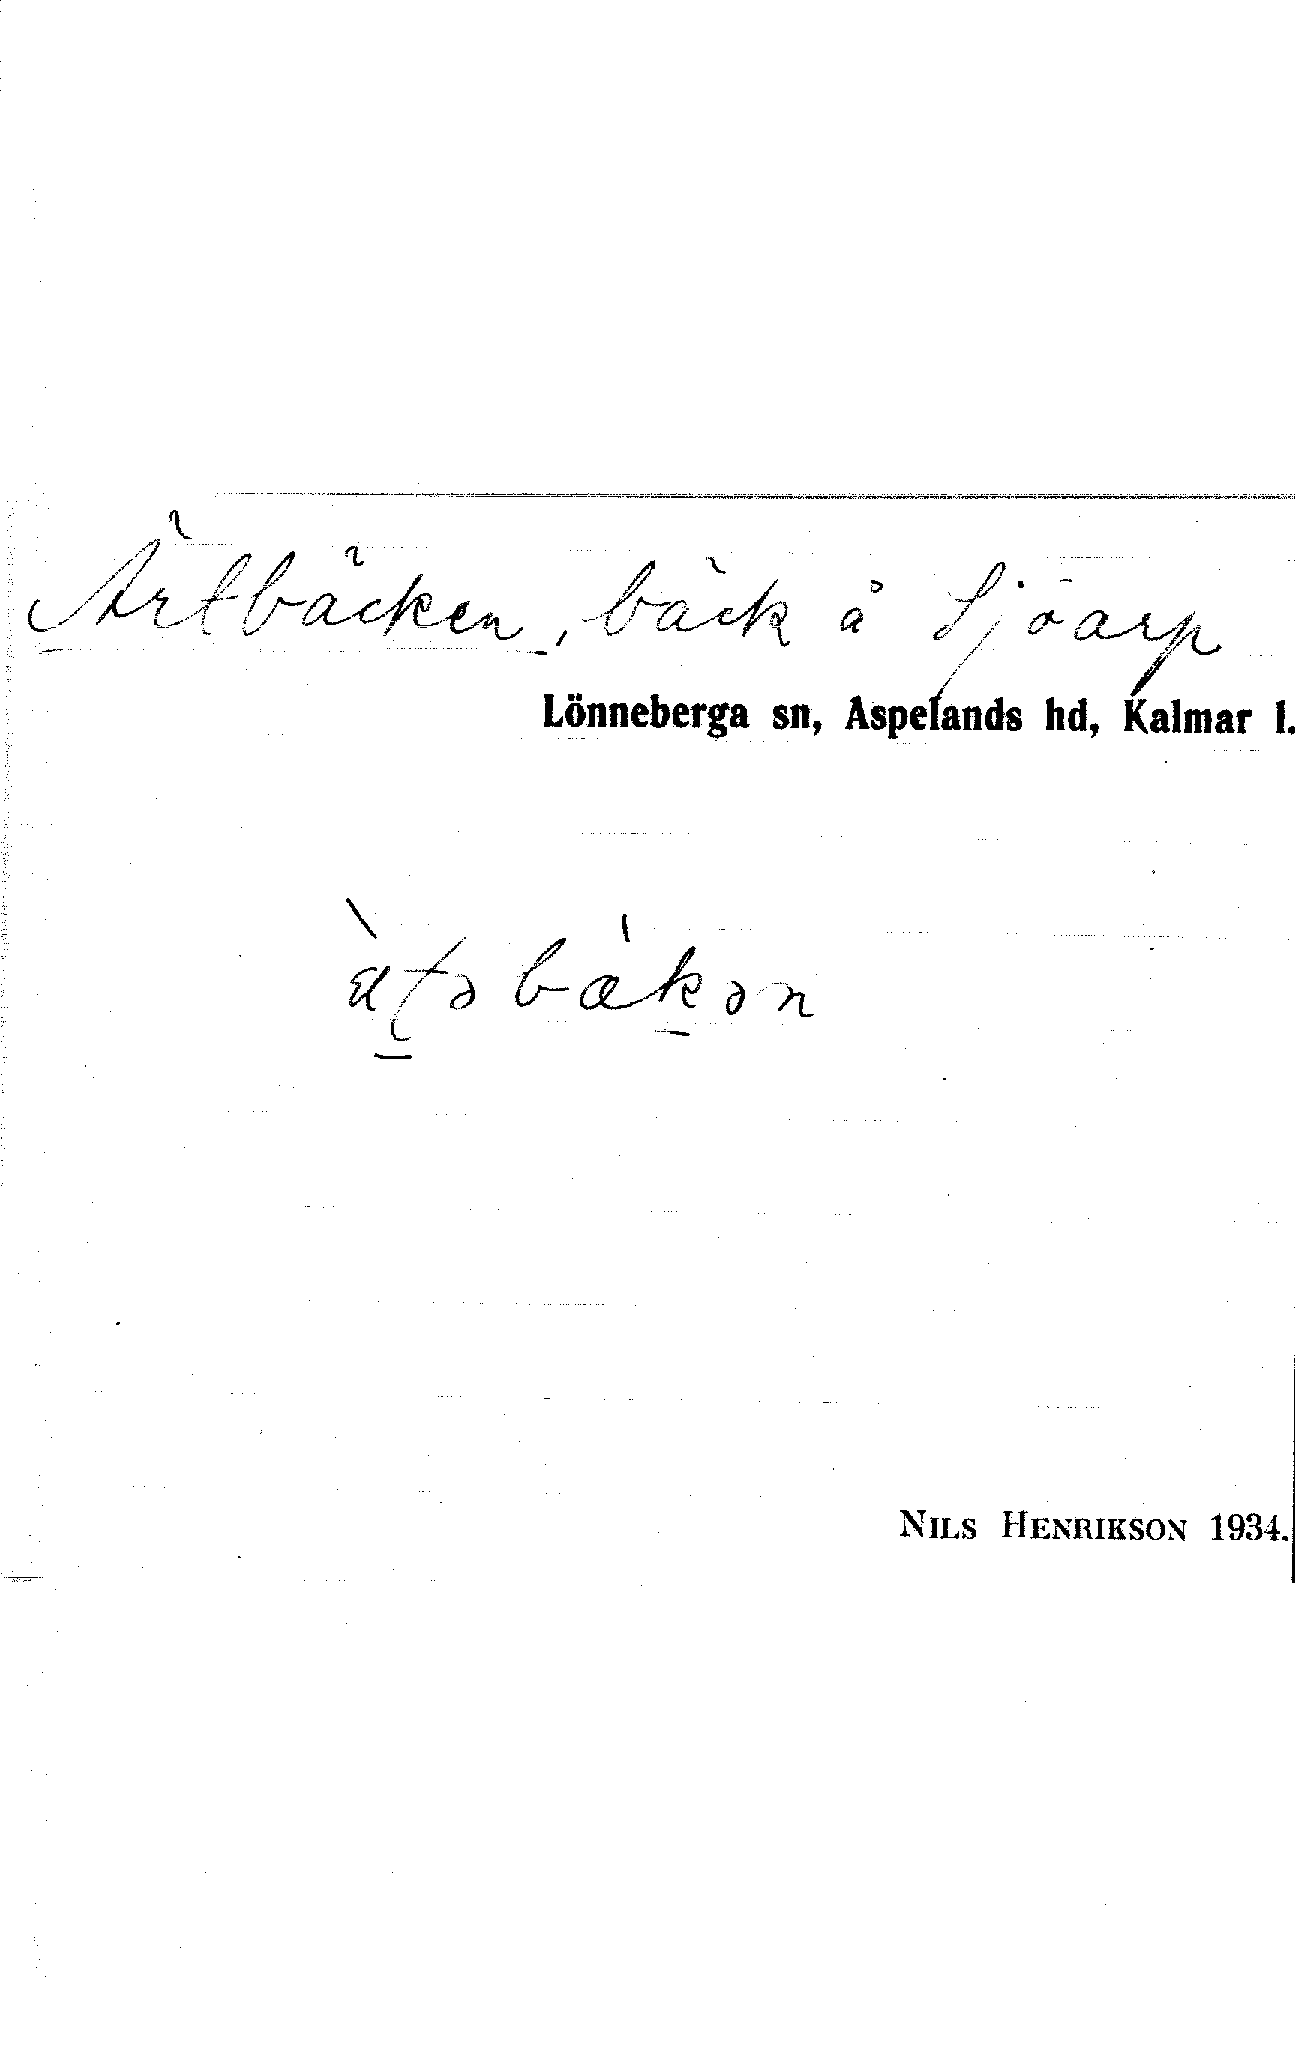 Ärtbäcken, bäck å Sjöarp
Lönneberga sn, Aspelands hd, Kalmar l.
NILS HENRIKSON 1934.